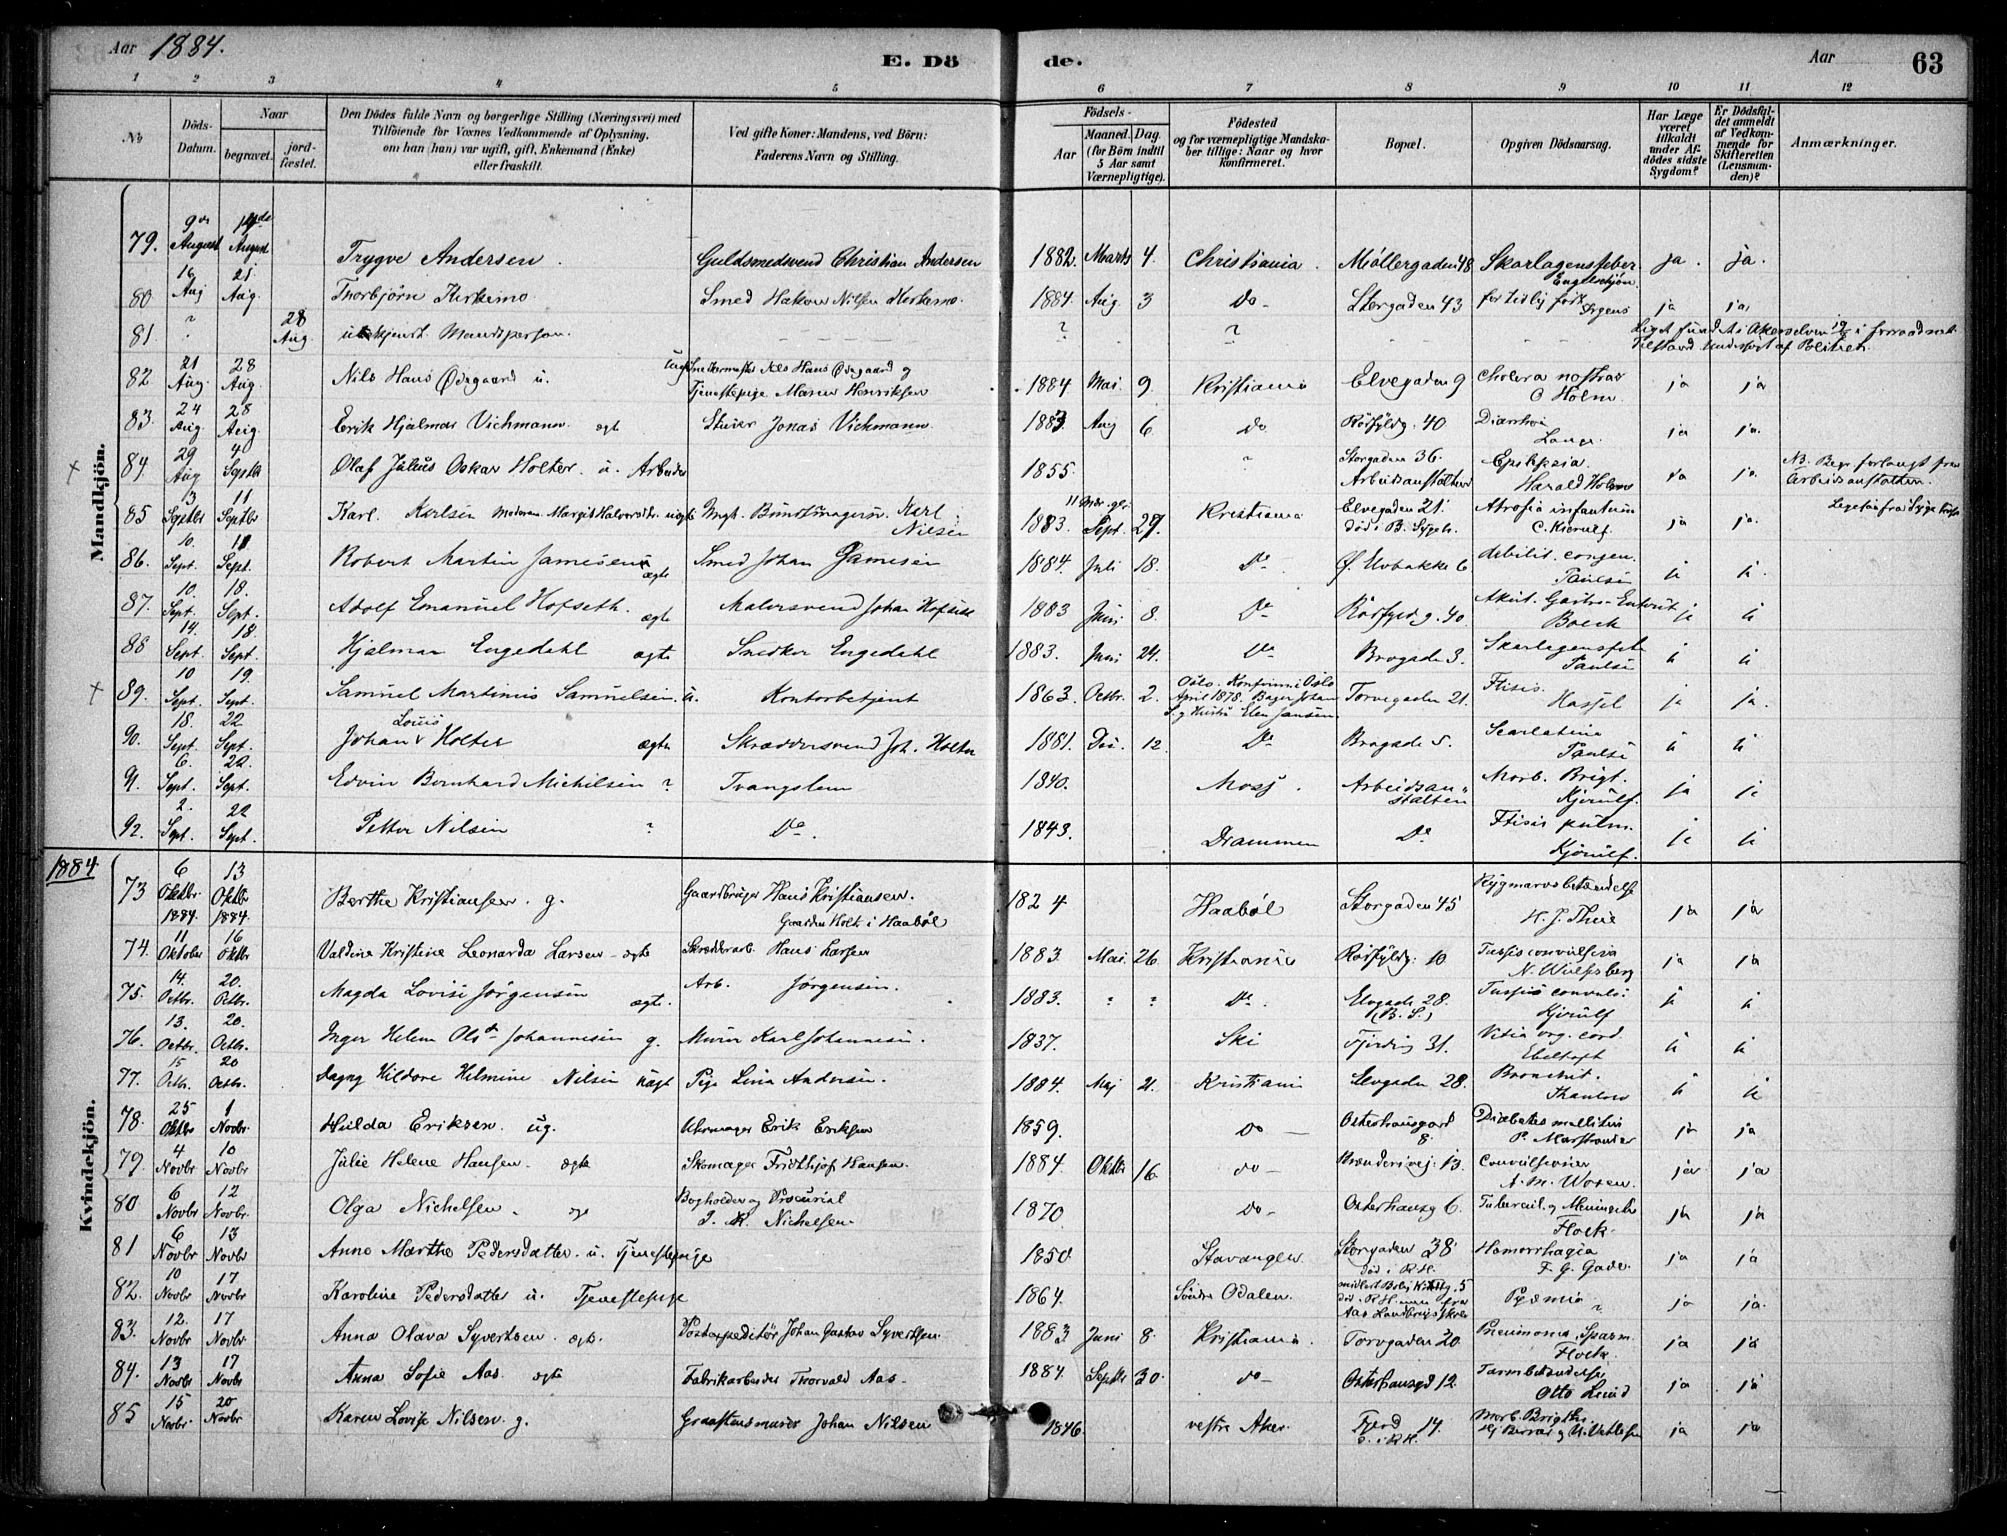 Aar 1884.
E. Dö
de.
Aar
63
1 2 3 4 5 6 7 8 9 10 11 12
No
Döds-Datum.
Naar
begravet.
jordfæstet.
Den Dödes fulde Navn og borgerlige Stilling (Næringsvei) med
Tilföiende for Voxnes Vedkommende af Oplysning,
om han (hun) var ugift, gift, Enkemand (Enke)
eller fraskilt.
Ved gifte Koner: Mandens, ved Börn:
Faderens Navn og Stilling.
Födsels-
Aar
Maaned. Dag.
(for Börn indtil
5 Aar samt
Værnepligtige).
Födested
og for værnepligtige Mandskaber tillige: Naar og hvor
Konfirmeret.
Bopæl.
Opgiven Dödsaarsag.
Har Læge
været
tilkaldt
under Afdödes sidste
Sygdom?
Er Dödsfaldet anmeldt
af Vedkommende for
Skifteretten
(Lensmanden)?
Anmærkninger.
Mandkjön.
79. 9de August 14de August Trygve Andersen. Guldsmedsvend Christian Andersen 1882. Marts 4. Christiania. Møllergaden 48 Skarlagensfeber Engelskjøn. ja. ja.
80 16 Aug 21 Aug. Thorbjörn Kirkemo. Smed Hakon Nilsen Kirkemo. 1884. Aug 3 Do Storgaden 43 for tidlig født ja ja,
81. ? 28 Aug. ubekjendt Mandsperson. ? ? Liget fundet i Akerselven i forraadnet Tilstand Undersøgt af Politiet.
82. 21 Aug. 28 Aug. Nils Hans Ødegaard u. Snedkermester Nils Hans Ødegaard og Tjenestepige Maren Henriksen 1884 Mai 9 Kristiania Elvegaden 9 Cholera nostras C Holm. ja ja
83. 24 Aug. 28 Aug. Erik Hjalmar Vichmann. ægt Stuer Jonas Vichmann. 1883. Aug 6 do Rörfyldg. 40 Diarrhoe Lange. ja ja.
84 29 Aug 4 Septb Olaf Julius Oskar Holter. u. Arbeider 1855 ? Storgaden 36. Arbeidsanstalten Epilepsia. Harald Holm ja. NB. Begr forlangt fra Arbeidsanstalten.
85 3 Septbr 11 Septbr Karl. Karlsen Moderen Margit Halvorsdtr uægte Ungk. Bundtmagersv. Karl Nilsen 1883. Sept. 29. Kristiania Elvegaden 21. død i B. Sygeh. Atrofia infantum C. Kierulf ja ja.
86. 10. Sept. 11 Sept. Robert Martin Jamesen ægte Smed Johan Jamesen 1884. Juli 18. Do Ø. Elvbakke 6 debilit. congen. Paulsen
87. 10. Sept. 18. Sept. Adolf Emanuel Hofseth. ægte Malersvend Johan Hofseth 1883 Juni 8. Do Rörfyldg. 40. Akut. Gastro-Enterit Boeck
88 14. Sept. 18. Sept. Hjalmar Engedahl ægte Snedker Engedahl 1883. Juni 24. Do Brogade 3. Skarlagensfeb Paulsen
89. 10 Sept. 19. Sept. Samuel Martinus Samuelsen u. Kontorbetjent 1863. Octbr. 2. Oslo. Konfirm. i Oslo April 1878. Torvegaden 21. Ftisis. Hassel ja ja.
90. 18. Sept. 22 Sept. Johan Louis Holter ægte Skræddersvend Joh. Holter 1881. Dec. 12. Do Brogade 5. Scarlatina Paulsen
91. 6. Sept. 22. Sept. Edvin Bernhard Michelsen ? Tvangslem 1840. Moss. Arbeidsanstalten Morb. Brigt. Kjerulf. ja
92. 2. Sept. 22 Sept. Petter Nilsen ? Do. 1843. Drammen Do Ftisis pulm. Kjerulf.
1884
Kvindekjön.
73 6 Oktbr. 1884. 13 Oktbr 1884. Berthe Kristiansen. g. Gaardbruger Hans Kristiansen. Gaarden Holt i Haabøl 1824 Haabøl Storgaden 45 Rygmarvsbetændelse H. J. Thue ja ja
74. 11 Oktober 16 Oktbr Valdine Kristine Leonarda Larsen ægte Skrædderarb. Hans Larsen 1883. Mai. 26. Kristiania Rörfyldg. 10 Tussis convulsiva N. Wulfsberg ja ja
75. 14. Octbr. 20. Octbr. Magda Lovise Jørgensen ægt. Arb. Jørgensen. 1883. " " Do. Elvgade 28. (B. S.) Tussis convuls: Kjerulf
76. 13. Octbr. 20. Octbr. Inger Helene Olsdt Johannesen g. Murer Karl Johannesen. 1837. Ski Fjerding 31. Vitia org. cord. Ebeltoft
77. 15 Octbr. 20 Octbr. Dagny Hildore Helmine Nilsen uægt Pige Lina Andersen. 1884. Maj 21. Kristiania Elvgaden 28. Bronchit. Thaulow
78. 25 Oktbr 1 Novbr. Hulda Eriksen. ug. Uhrmager Erik Eriksen 1859. Do Osterhausgad 8. Diabetes mellitus P. Marstrander ja ja
79. 4 Novbr 10 Novbr Julie Helene Hansen. ægte Skomager Fridthjof Hansen. 1884. Oktbr 16 do Brænderivej. 13. Convulsioner A. M. Woxen. ja ja
80 6 Novbr 12 Novbr. Olga Nichelsen. Bogholder og Procurist Nichelsen. 1870 Do Osterhausg 6. Tubercul. og Meningit. Flock. ja ja
81 6 Novbr 13 Novbr Anne Marthe Pedersdatter. u. Tjenestepige 1850 Stavanger Storgaden 38 død i R.H. Hæmorrhagia F. G. Gade. ja ja.
82. 10 Novbr 17 Novbr Karoline Pedersdatter u. Tjenestepige 1864. Søndre Odalen. død i R.H. fra Aas Landbrugsskole Pyæmia ? ja ja.
83. 12. Novbr 17 Novbr Anna Olava Syvertsen. ægt. Postexpeditør Johan Gustav Syvertsen. 1883 Juni 8. Kristiania. Torvgaden 20 Pneumonia. Spasm. Flock. ja ja
84. 13 Novbr 17 Novbr Anna Sofie Aas. ægte Fabrikarbeider Thorvald Aas. 1884. Septbr 30. do Osterhausgd 12. Tarmbetændelse Otto Lund ja ja
85 15 Novbr. 20 Novbr Karen Lovise Nilsen. g. Graastensmurer Johan Nilsen 1846. vestre Aker. Fjerd 14. Morb. Brigthi. ja ja